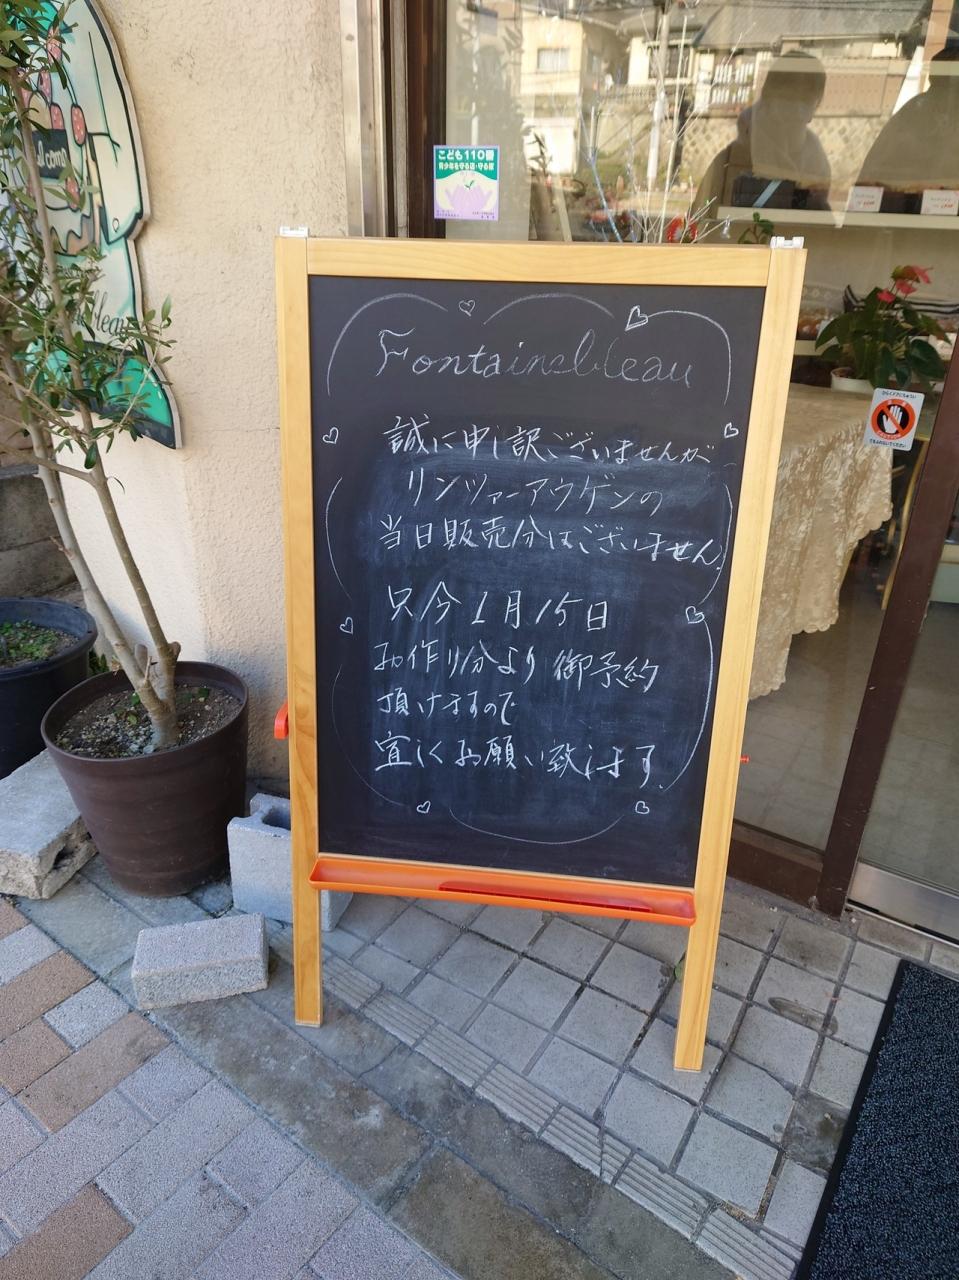 こども110番
青少年を守る店・守る家
Fontainebleau
誠に申し訳ございませんが
リンツァーアウゲンの
当日販売分はございません。
只今1月15日
お作り分より御予約
頂けますので
宜しくお願い致します。